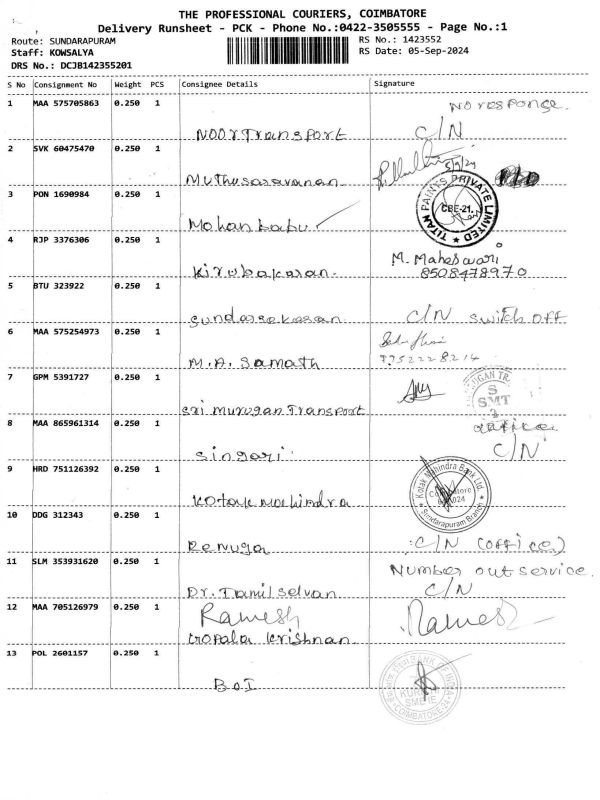 THE PROFESSIONAL COURIERS, COIMBATORE
Delivery Runsheet - PCK - Phone No.:0422-3505555 - Page No.:1
Route: SUNDARAPURAM RS No.: 1423552
Staff: KOWSALYA RS Date: 05-Sep-2024
DRS No.: DCJB142355201
S No Consignment No Weight PCS Consignee Details Signature
1 MAA 575705863 0.250 1 No response.
Noor Transport C/N
2 SVK 60475470 0.250 1
Muthusaravanan 5/9/24
3 PON 1690984 0.250 1 TITAN PAINTS PRIVATE LIMITED
CBE-21.
Mohan babu
4 RJP 3376306 0.250 1 M. Maheswari
Kirubakaran 8508478970
5 BTU 323922 0.250 1
Sundarsekaran C/N switch off
6 MAA 575254973 0.250 1
M.A. Samath 9952228214
7 GPM 5391727 0.250 1 SMT
Sri Murugan Transport
8 MAA 865961314 0.250 1
Singari C/N
9 HRD 751126392 0.250 1 Kotak Mahindra Bank Ltd.
Sundarapuram Branch
Kotak Mahindra
10 DDG 312343 0.250 1
Renuga C/N (office)
11 SLM 353931620 0.250 1 Number out service.
Dr. Tamilselvan C/N
12 MAA 705126979 0.250 1 Ramesh Ramesh
Gopala Krishnan
13 POL 2601157 0.250 1 BANK OF INDIA
BOI COIMBATORE-24